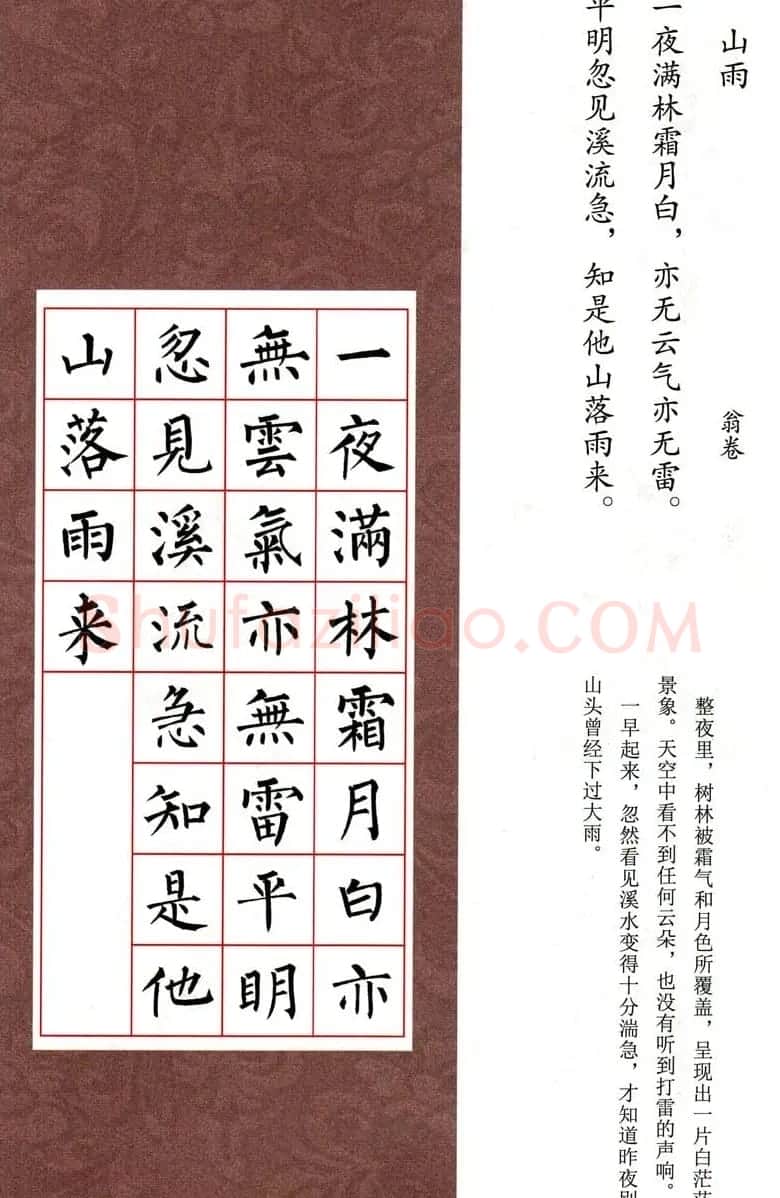 山雨
翁卷
一夜满林霜月白，亦无云气亦无雷。
平明忽见溪流急，知是他山落雨来。
整夜里，树林被霜气和月色所覆盖，呈现出一片白茫
景象。天空中看不到任何云朵，也没有听到打雷的声响。
一早起来，忽然看见溪水变得十分湍急，才知道昨夜别
山头曾经下过大雨。
一夜滿林霜月白亦
無雲氣亦無雷平明
忽見溪流急知是他
山落雨来
Shufaziliao.COM